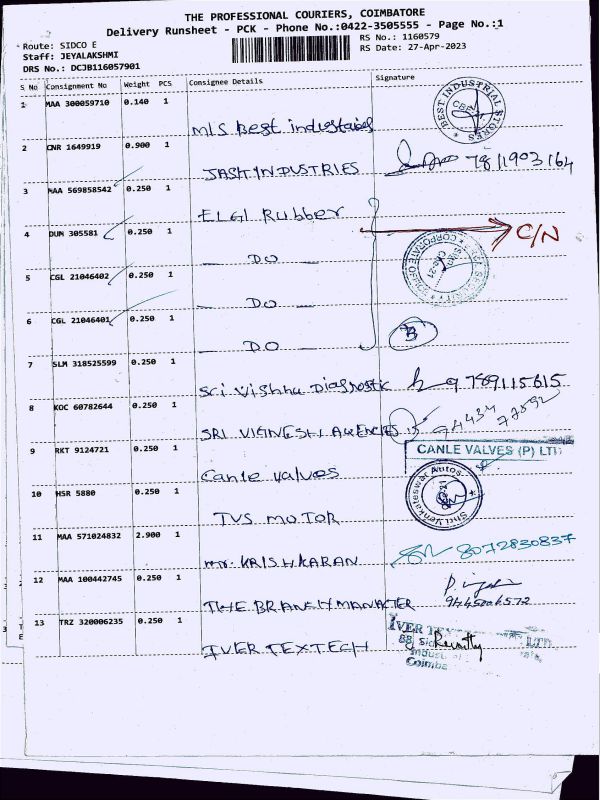 THE PROFESSIONAL COURIERS, COIMBATORE
Delivery Runsheet - PCK - Phone No.:0422-3505555 - Page No.:1
Route: SIDCO E
RS No.: 1160579
Staff: JEYALAKSHMI
RS Date: 27-Apr-2023
DRS No.: DCJB116057901
S No Consignment No Weight PCS Consignee Details Signature
1 MAA 300059710 0.140 1
M/S Best industries
BEST INDUSTRIAL STORES
CBE
2 CNR 1649919 0.900 1
JASH INDUSTRIES 7811903164
3 MAA 569858542 0.250 1
ELGI Rubber
C/N
4 DUM 305581 0.250 1
DO
5 CGL 21046402 0.250 1
DO
6 CGL 21046401 0.250 1
DO
B
7 SLM 318525599 0.250 1
Sri Vishnu Diagnostic 9789115615
8 KOC 60782644 0.250 1
SRI VIGNESH AGENCIES
9 RKT 9124721 0.250 1
CANLE VALVES (P) LTD
Canle valves
10 HSR 5880 0.250 1
Shri Venkateswar Autos
TVS MOTOR
11 MAA 571024832 2.900 1
mr. KRISHKARAN 8072830837
12 MAA 100442745 0.250 1
THE BRANCH MANAGER
13 TRZ 320006235 0.250 1
IVER TEXTECH
IVER
LTD
Coimba